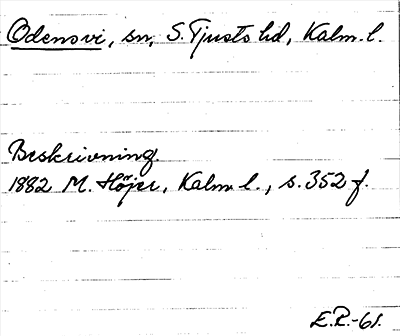 Odensvi, sn, S. Tjusts hd, Kalm. l.
Beskrivning.
1882 M. Höjer, Kalm. l., s. 352 f.
E.R.-61.